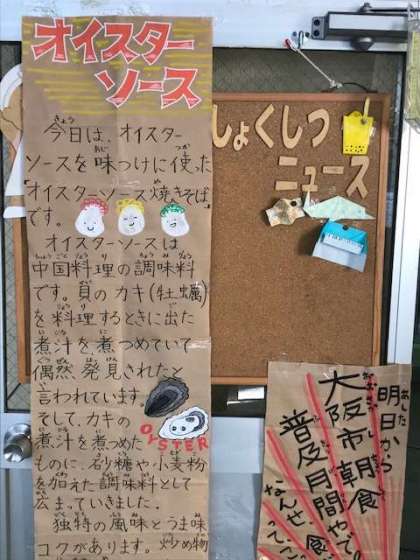 オイスター
ソース
今日は、オイスター
ソースを味つけに使った
「オイスターソース焼きそば」
です。
オイスターソースは
中国料理の調味料
です。貝のカキ(牡蠣)
を料理するときに出た
煮汁を煮つめていて
偶然、発見されたと
言われています。
そして、カキの
煮汁を煮つめた
ものに、砂糖や小麦粉
を加えた調味料として
広まっていきました。
独特の風味とうま味
コクがあります。炒め物
OYSTER
しょくしつ
ニュース
明日から
大阪市朝食
普及月間やで
なんせ、食